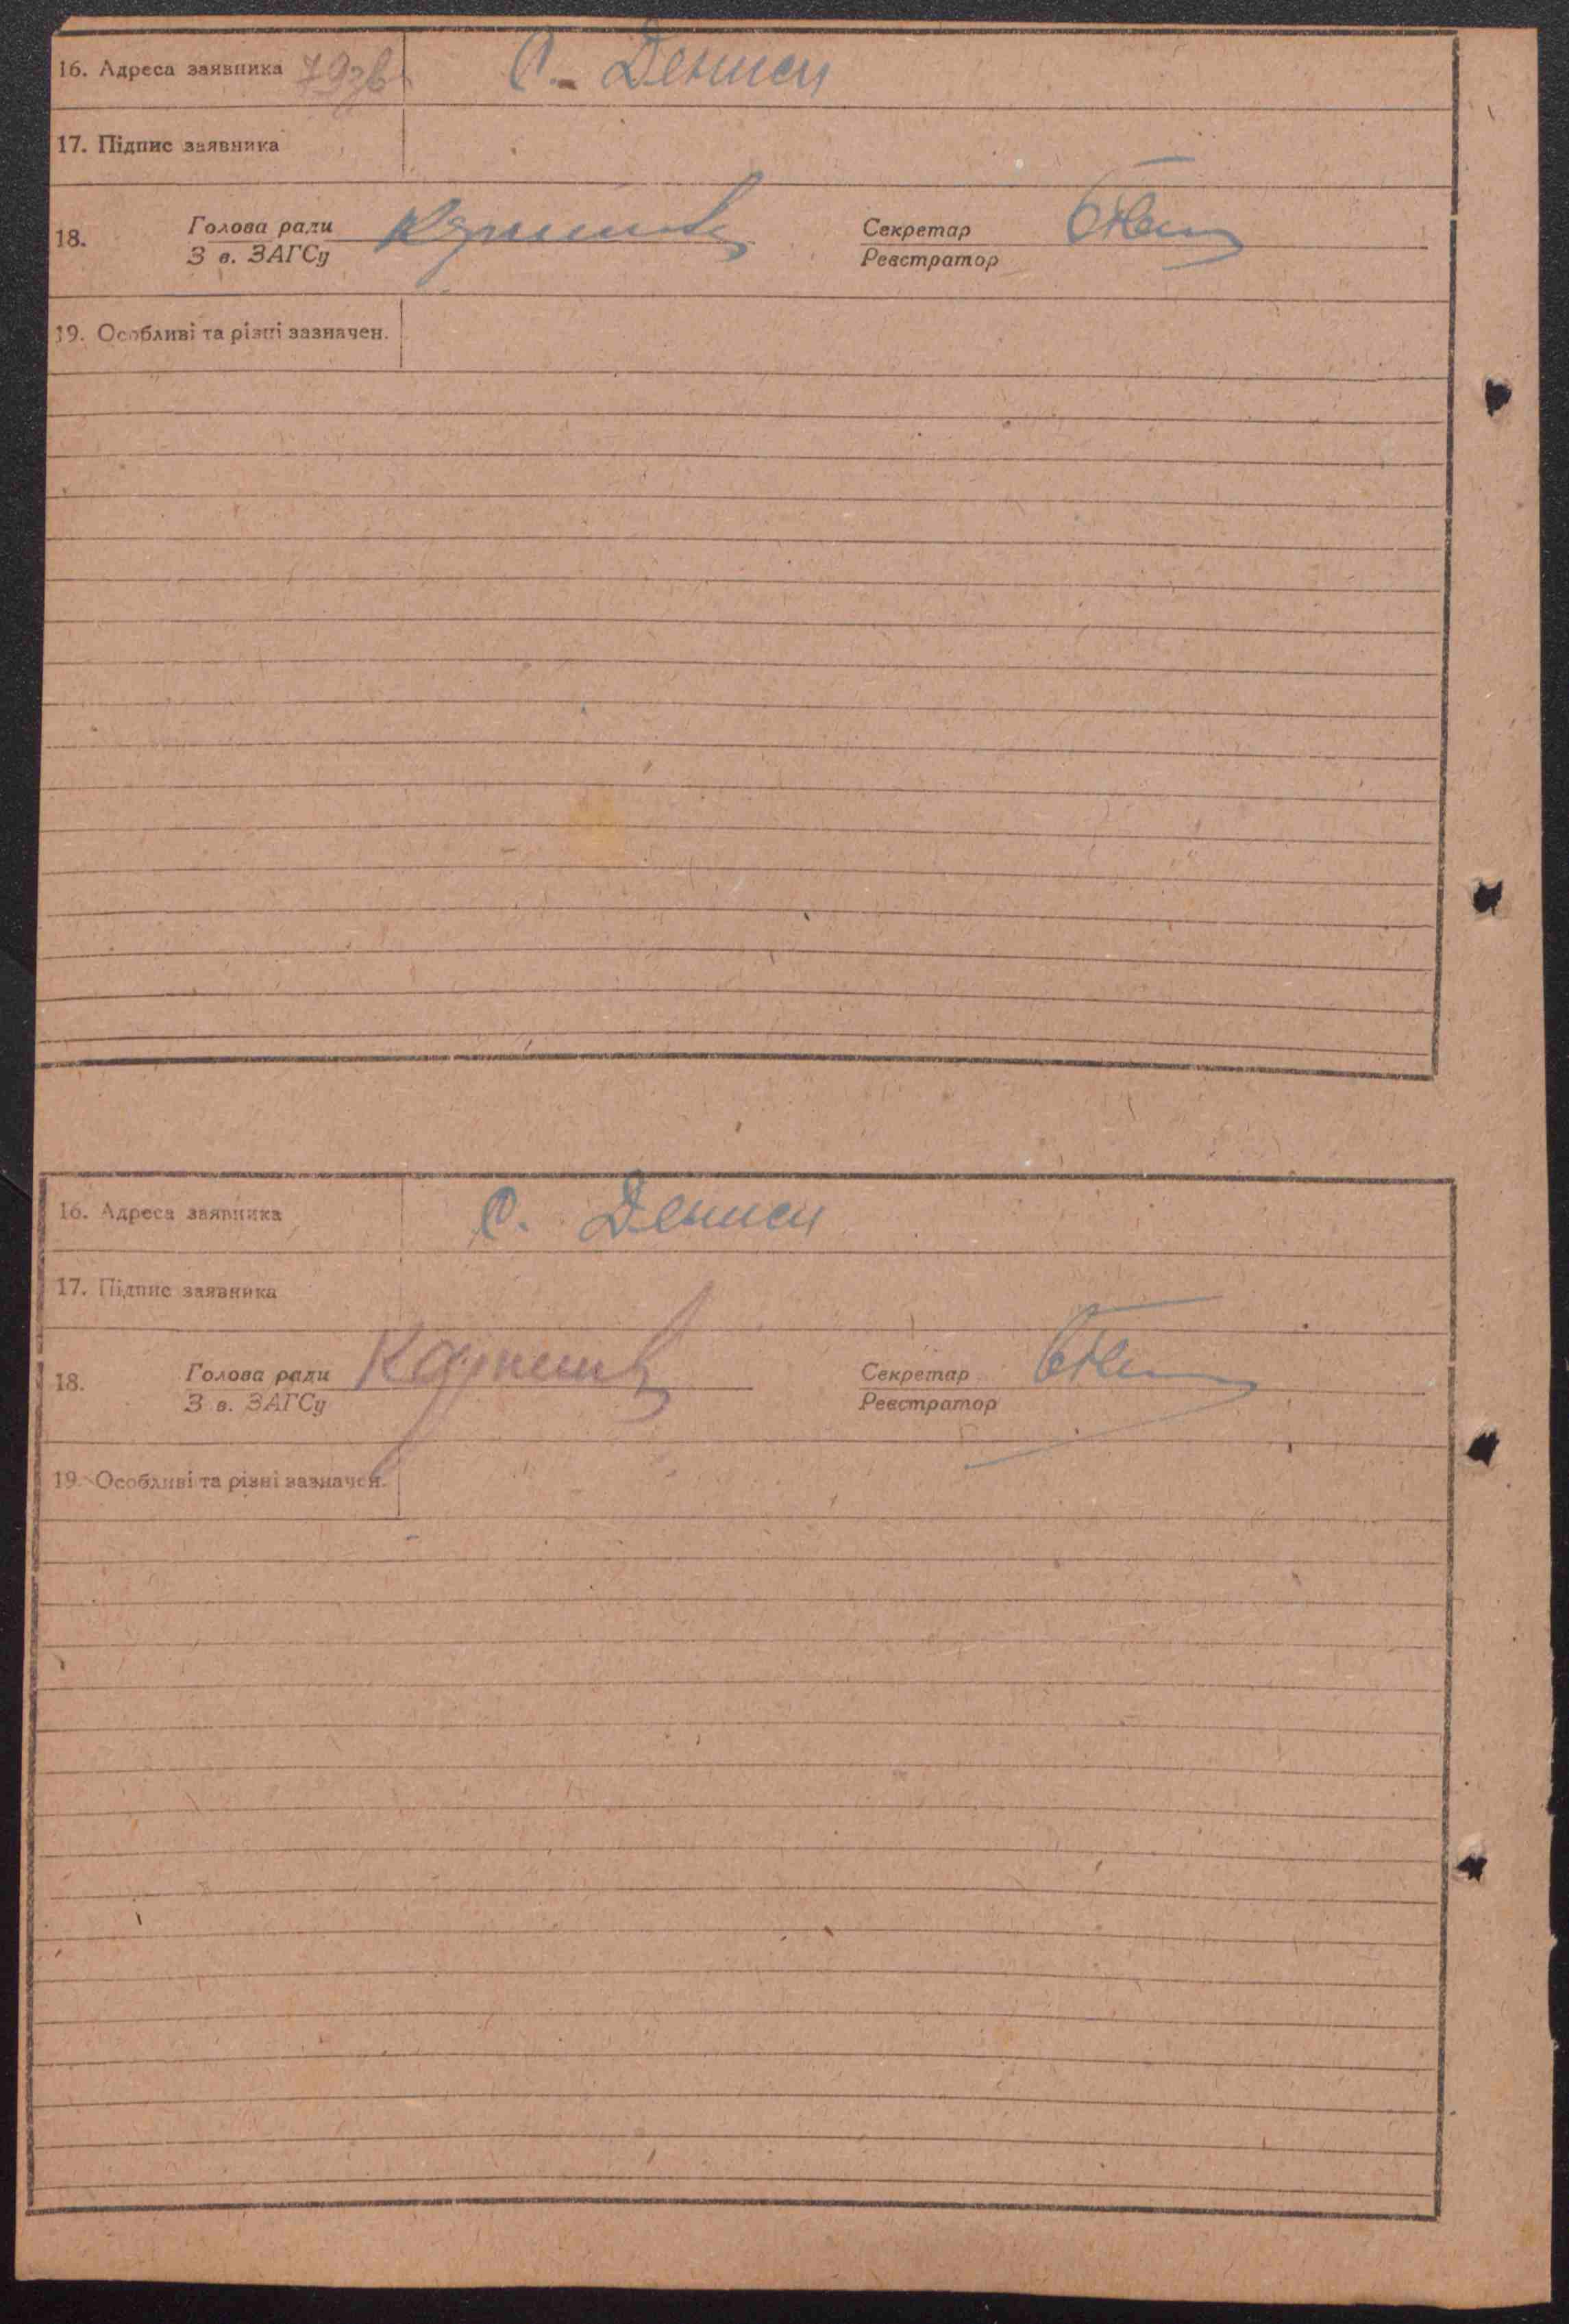 16. Адреса заявника 79зв С. Дениси
17. Підпис заявника
18. Голова ради Секретар
З в. ЗАГСу Реєстратор
19. Особливі та різні зазначен.
16. Адреса заявника С. Дениси
17. Підпис заявника
18. Голова ради Секретар
З в. ЗАГСу Реєстратор
19. Особливі та різні зазначен.